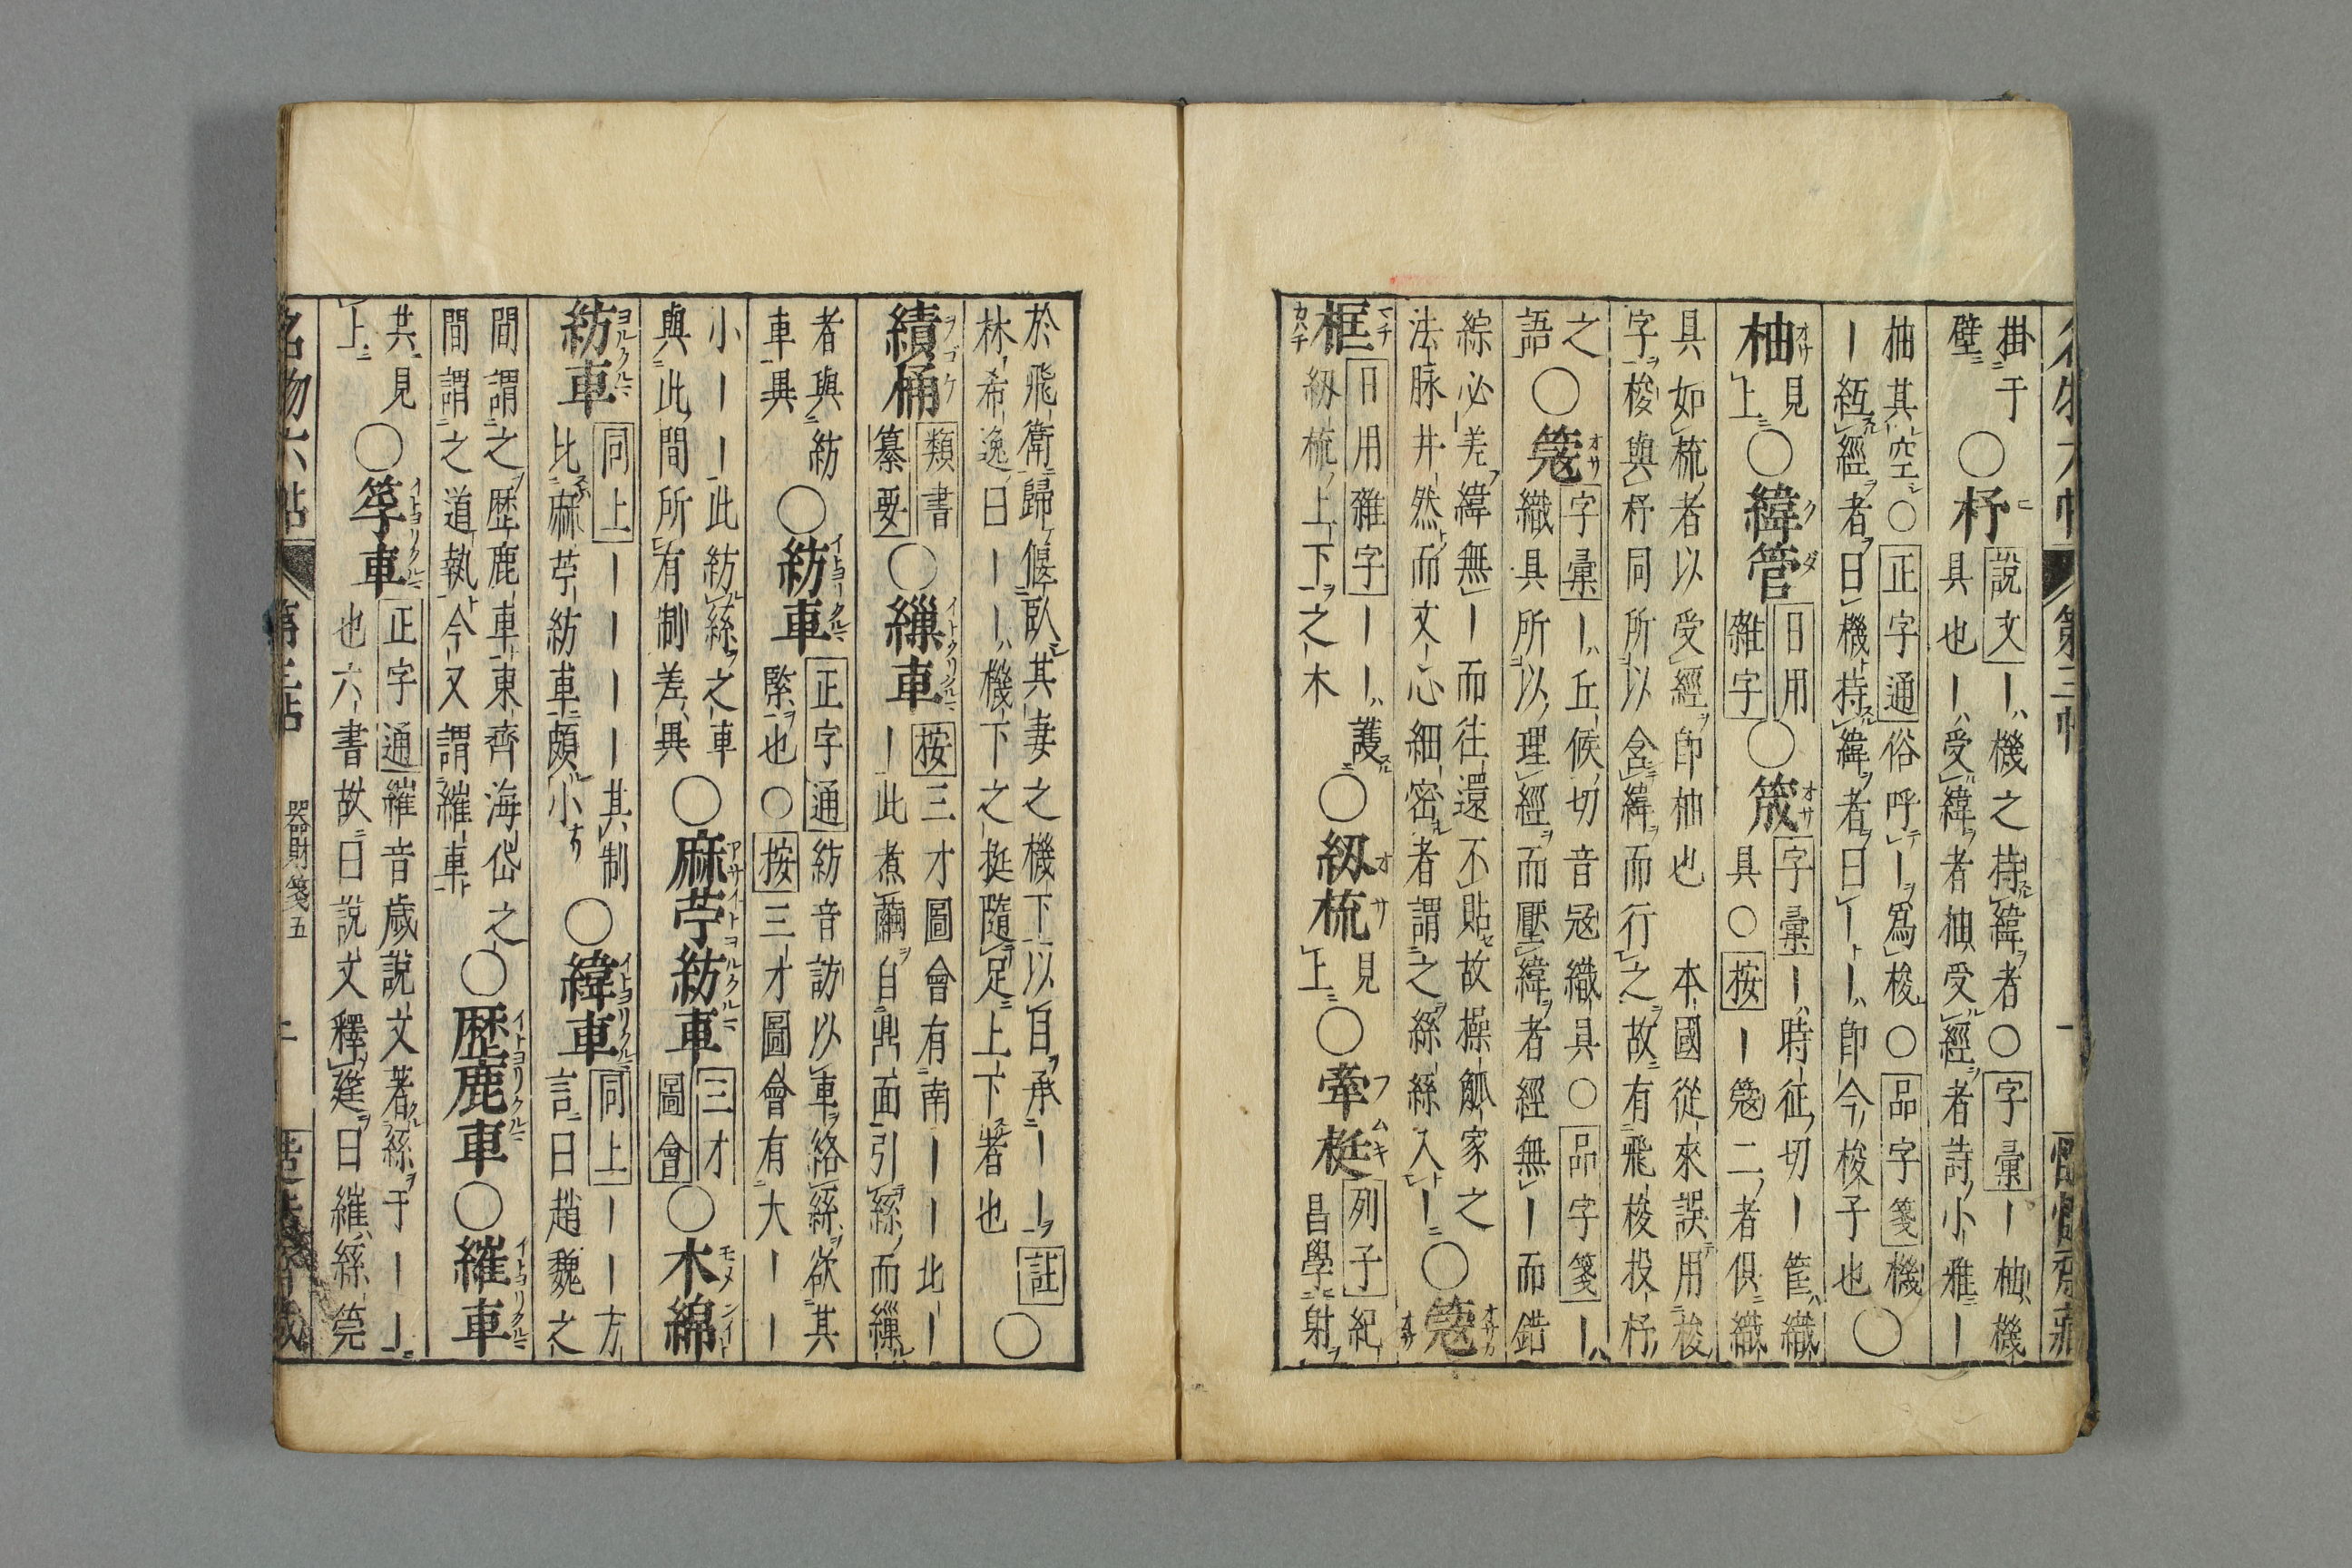 掛于
壁 ○杼 說文｜機之持緯者○字彙｜柚機
具也｜受緯者柚受經者詩小雅｜
柚其空○正字通俗呼｜爲梭○品字箋機
｜絍經者曰機持緯者曰｜｜即今梭子也 ○
柚 見
上 ○緯管 日用
雜字 ○筬 字彙｜時征切｜筐織
具○按｜簆二者俱織
具如梳者以受經即柚也 本國從來誤用梭
字梭與杼同所以含緯而行之故有飛梭投杼
之
語 ○簆 字彙｜丘候切音冦織具○品字箋｜
織具所以理經而壓緯者經無｜而錯
綜必差緯無｜而往還不貼故操觚家之
法脉井然而文心細密者謂之絲絲入｜ ○簆
框 日用雜字｜｜護
紉梳上上下之木 ○紉梳 見
上 ○牽梃 列子紀
昌學射
於飛衛歸偃臥其妻之機下以目承｜｜註
林希逸曰｜｜機下之挺隨足上下者也 ○
績桶 類書
纂要 ○繅車 按三才圖會有南｜｜北｜
｜此煮繭自鼎面引絲而繅
者與紡
車異 ○紡車 正字通紡音訪以車絡絲欲其
緊也○按三才圖會有大｜｜
小｜｜此紡絲之車
與此間所有制差異 ○麻苧紡車 三才
圖會 ○木綿
紡車 同上｜｜｜｜其制
比麻苧紡車頗小 ○緯車 同上｜｜方
言曰趙魏之
間謂之歷鹿車東齊海岱之
間謂之道執今又謂維車 ○歷鹿車 ○維車
共見
上 ○筟車 正字通維音歲說文著絲于｜｜
也六書故曰說文釋筳曰維絲筦
名物六帖 第三帖 器財箋五